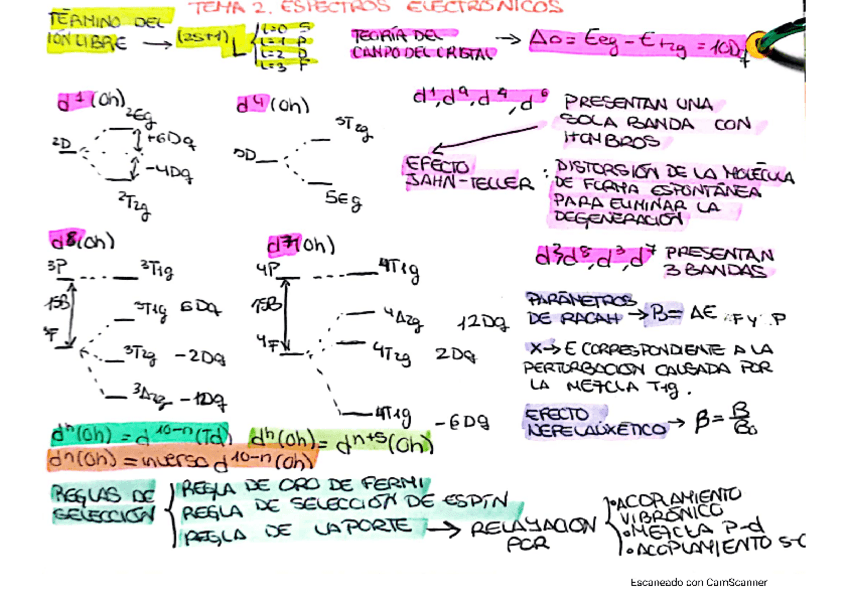 TEMA 2. ESPECTROS ELECTRÓNICOS
TÉRMINO DEL
ION LIBRE → (2S+1) L
L=0 S
L=1 P
L=2 D
L=3 F
TEORÍA DEL
CAMPO DEL CRISTAL → Δo = Eeg - Et2g = 10Dq
d1 (Oh)
2D
2Eg
+6Dq
-4Dq
2T2g
d4 (Oh)
5D
5T2g
5Eg
d1, d9, d4, d6 PRESENTAN UNA
SOLA BANDA CON
HOMBROS
EFECTO
JAHN-TELLER : DISTORSIÓN DE LA MOLÉCULA
DE FORMA ESPONTÁNEA
PARA ELIMINAR LA
DEGENERACIÓN
d8 (Oh)
3P
3T1g
15B
3T1g 6Dq
3F
3T2g -2Dq
3A2g -12Dq
d7 (Oh)
4P
4T1g
15B
4A2g 12Dq
4F
4T2g 2Dq
4T1g -6Dq
d2, d8, d3, d7 PRESENTAN
3 BANDAS
PARÁMETROS
DE RACAH → B = ΔE F y P
X → E CORRESPONDIENTE A LA
PERTURBACIÓN CAUSADA POR
LA MEZCLA T1g.
EFECTO
NEFELAUXÉTICO → β = B/B0
dn (Oh) = d10-n (Td) dn (Oh) = dn+5 (Oh)
dn (Oh) = inverso d10-n (Oh)
REGLAS DE
SELECCIÓN
REGLA DE ORO DE FERMI
REGLA DE SELECCIÓN DE ESPÍN
REGLA DE LAPORTE → RELAJACIÓN
POR
• ACOPLAMIENTO
VIBRÓNICO
• MEZCLA P-d
• ACOPLAMIENTO S-
Escaneado con CamScanner